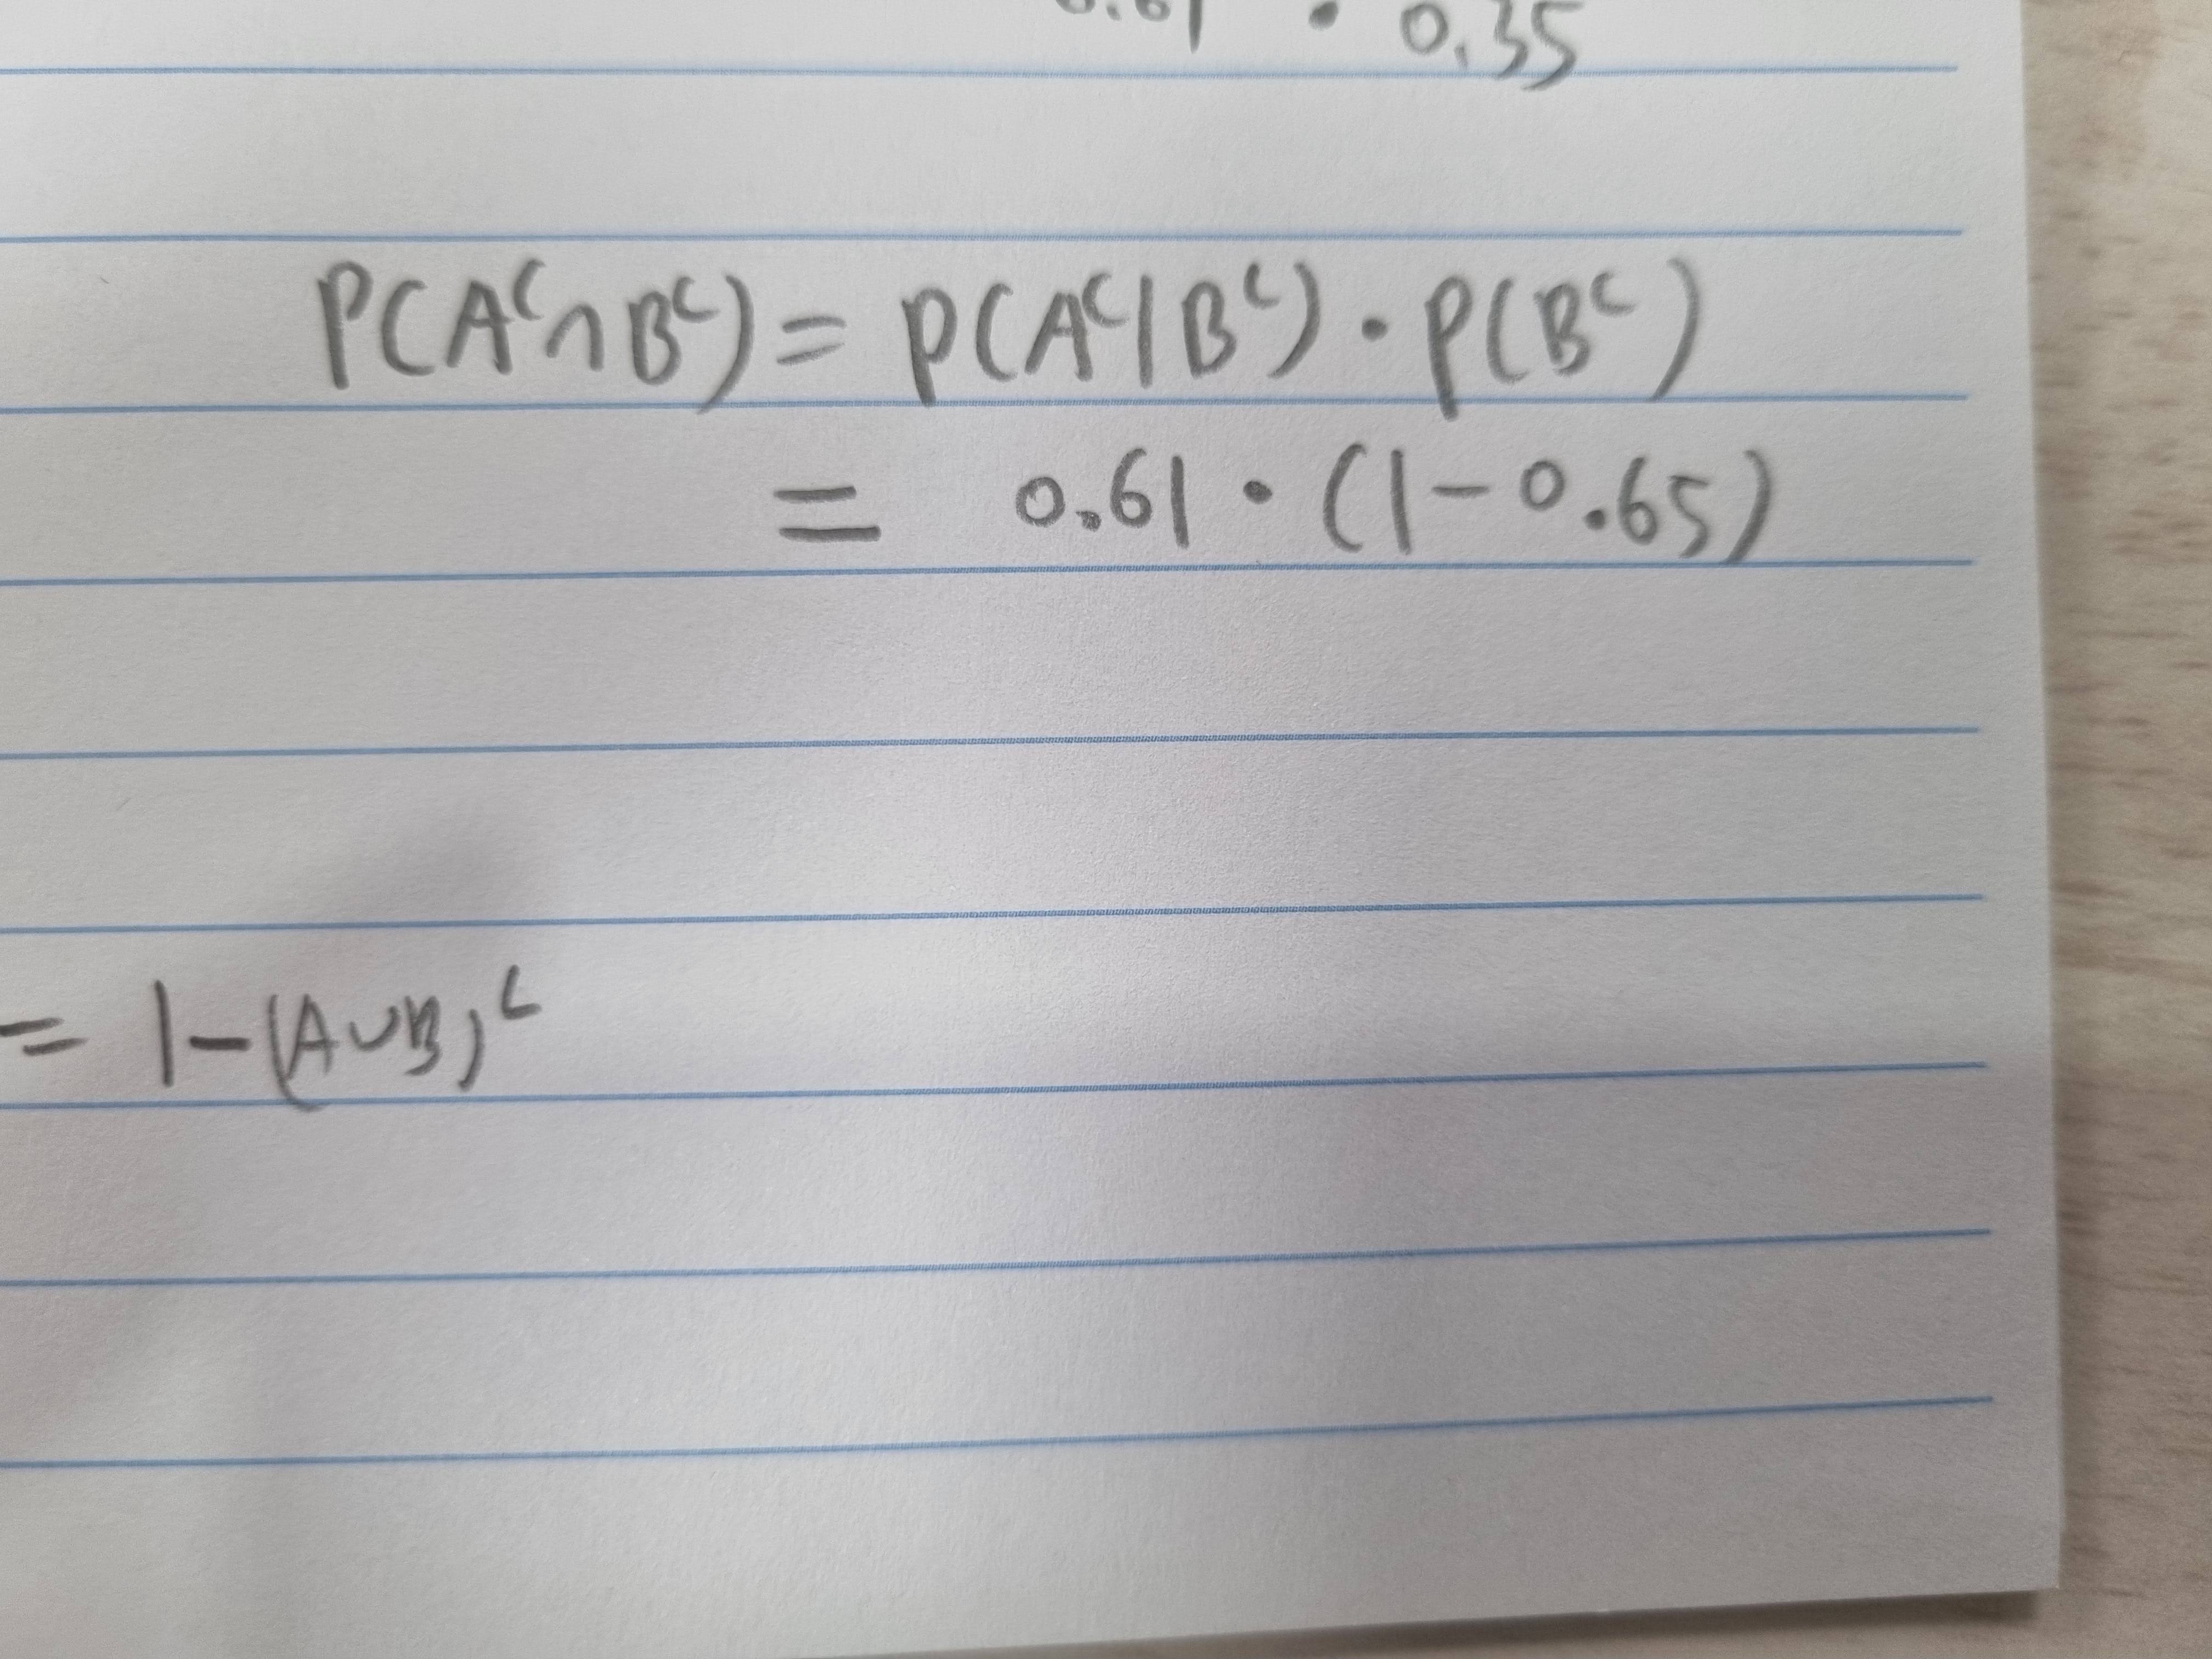 0.61 · 0.35
P(Aᶜ∩Bᶜ) = P(Aᶜ|Bᶜ) · P(Bᶜ)
= 0.61 · (1-0.65)
= 1-(A∪B)ᶜ